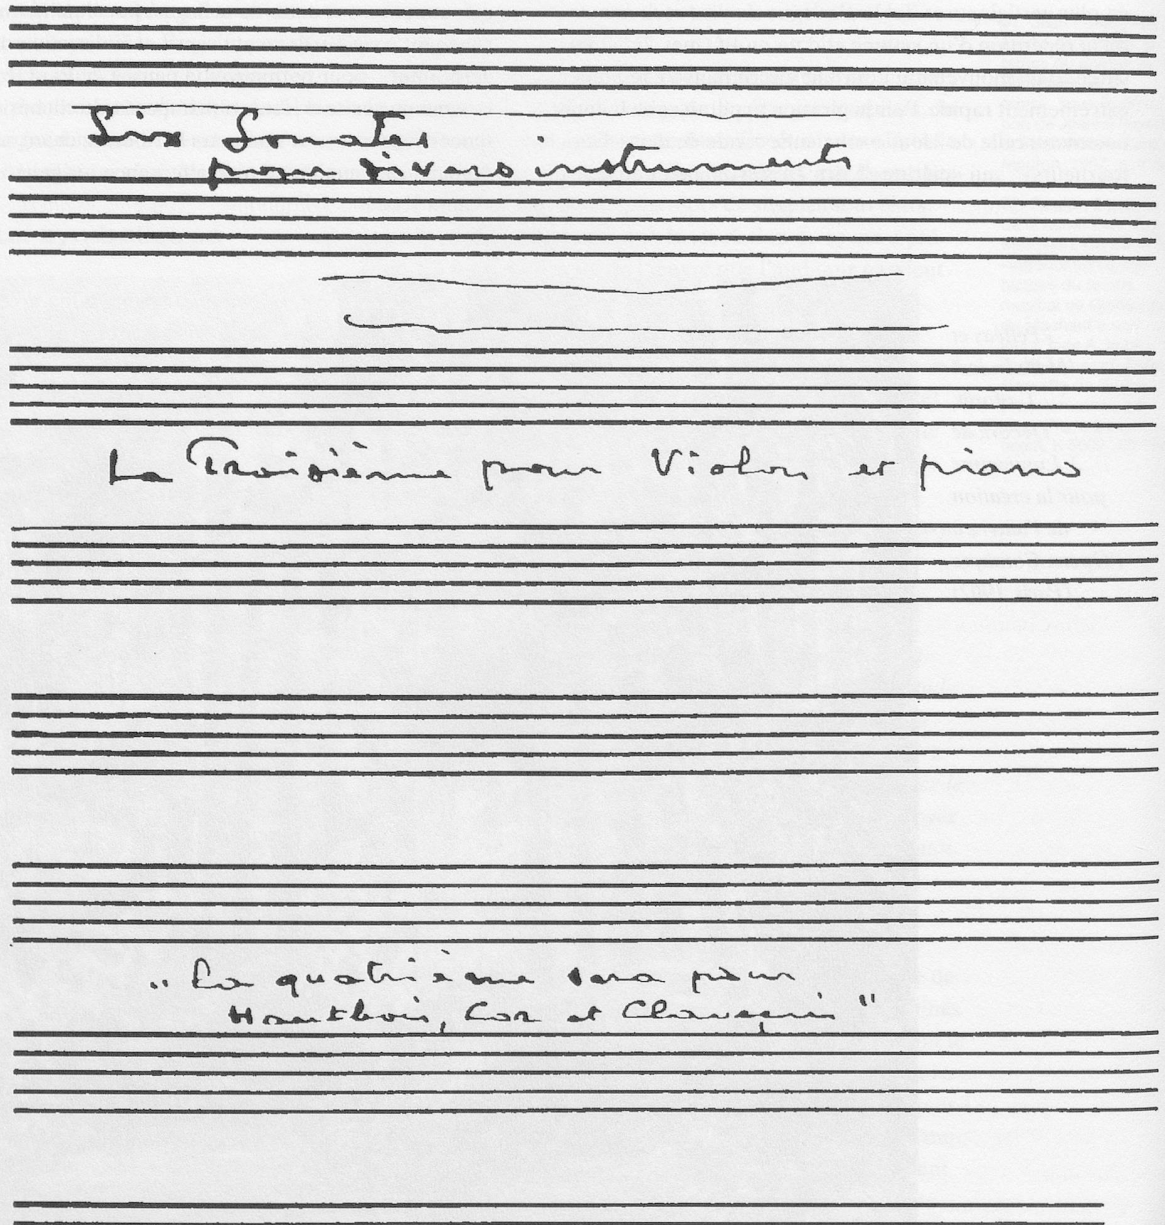 Six Sonates
pour divers instruments
La Troisième pour Violon et piano
"La quatrième sera pour
Hautbois, Cor et Clavecin"